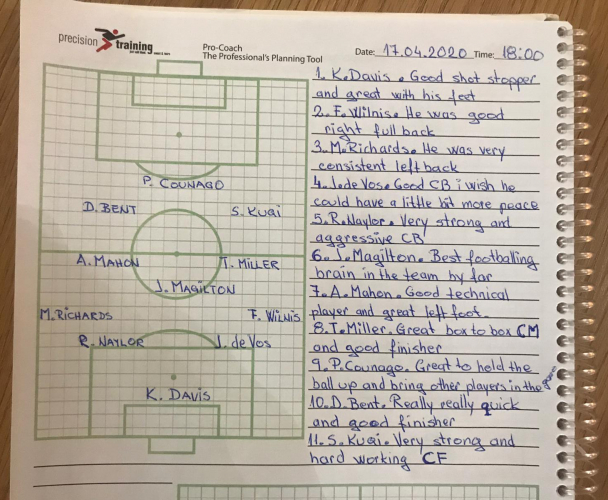 precision training
Pro-Coach
The Professional's Planning Tool
Date: 17.04.2020 Time: 18:00
P. COUNAGO
D. BENT
S. KUQI
A. MAHON
T. MILLER
J. MAGILTON
M. RICHARDS
F. WILNIS
R. NAYLOR
J. de Vos
K. DAVIS
1. K. Davis. Good shot stopper
and great with his feet
2. F. Wilnis. He was good
right full back
3. M. Richards. He was very
consistent left back
4. J. de Vos. Good CB i wish he
could have a little bit more peace
5. R. Naylor. Very strong and
aggressive CB
6. J. Magilton. Best footballing
brain in the team by far
7. A. Mahon. Good technical
player and great left foot.
8. T. Miller. Great box to box CM
and good finisher
9. P. Counago. Great to hold the
ball up and bring other players in the game
10. D. Bent. Really really quick
and good finisher
11. S. Kuqi. Very strong and
hard working CF